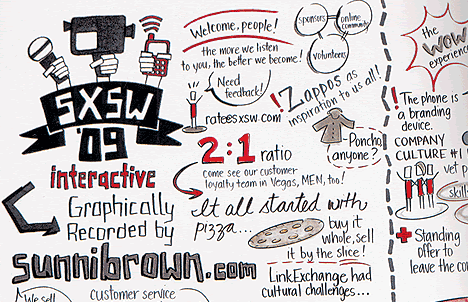 SXSW
'09
interactive
Graphically
Recorded by
sunnibrown.com
We sell
customer service
Welcome, people!
the more we listen
to you, the better we become!
sponsors
online
community
volunteers
Need
feedback!
ratesxsw.com
Zappos as
inspiration to us all!
2:1 ratio
come see our customer
loyalty team in Vegas, MEN, too!
Poncho,
anyone?
It all started with
pizza...
buy it
whole, sell
it by the slice!
LinkExchange had
cultural challenges...
the
WOW
experienc
! The phone is
a branding
device.
COMPANY
CULTURE #1
vet p
skill
+ Standing
Offer to
leave the co